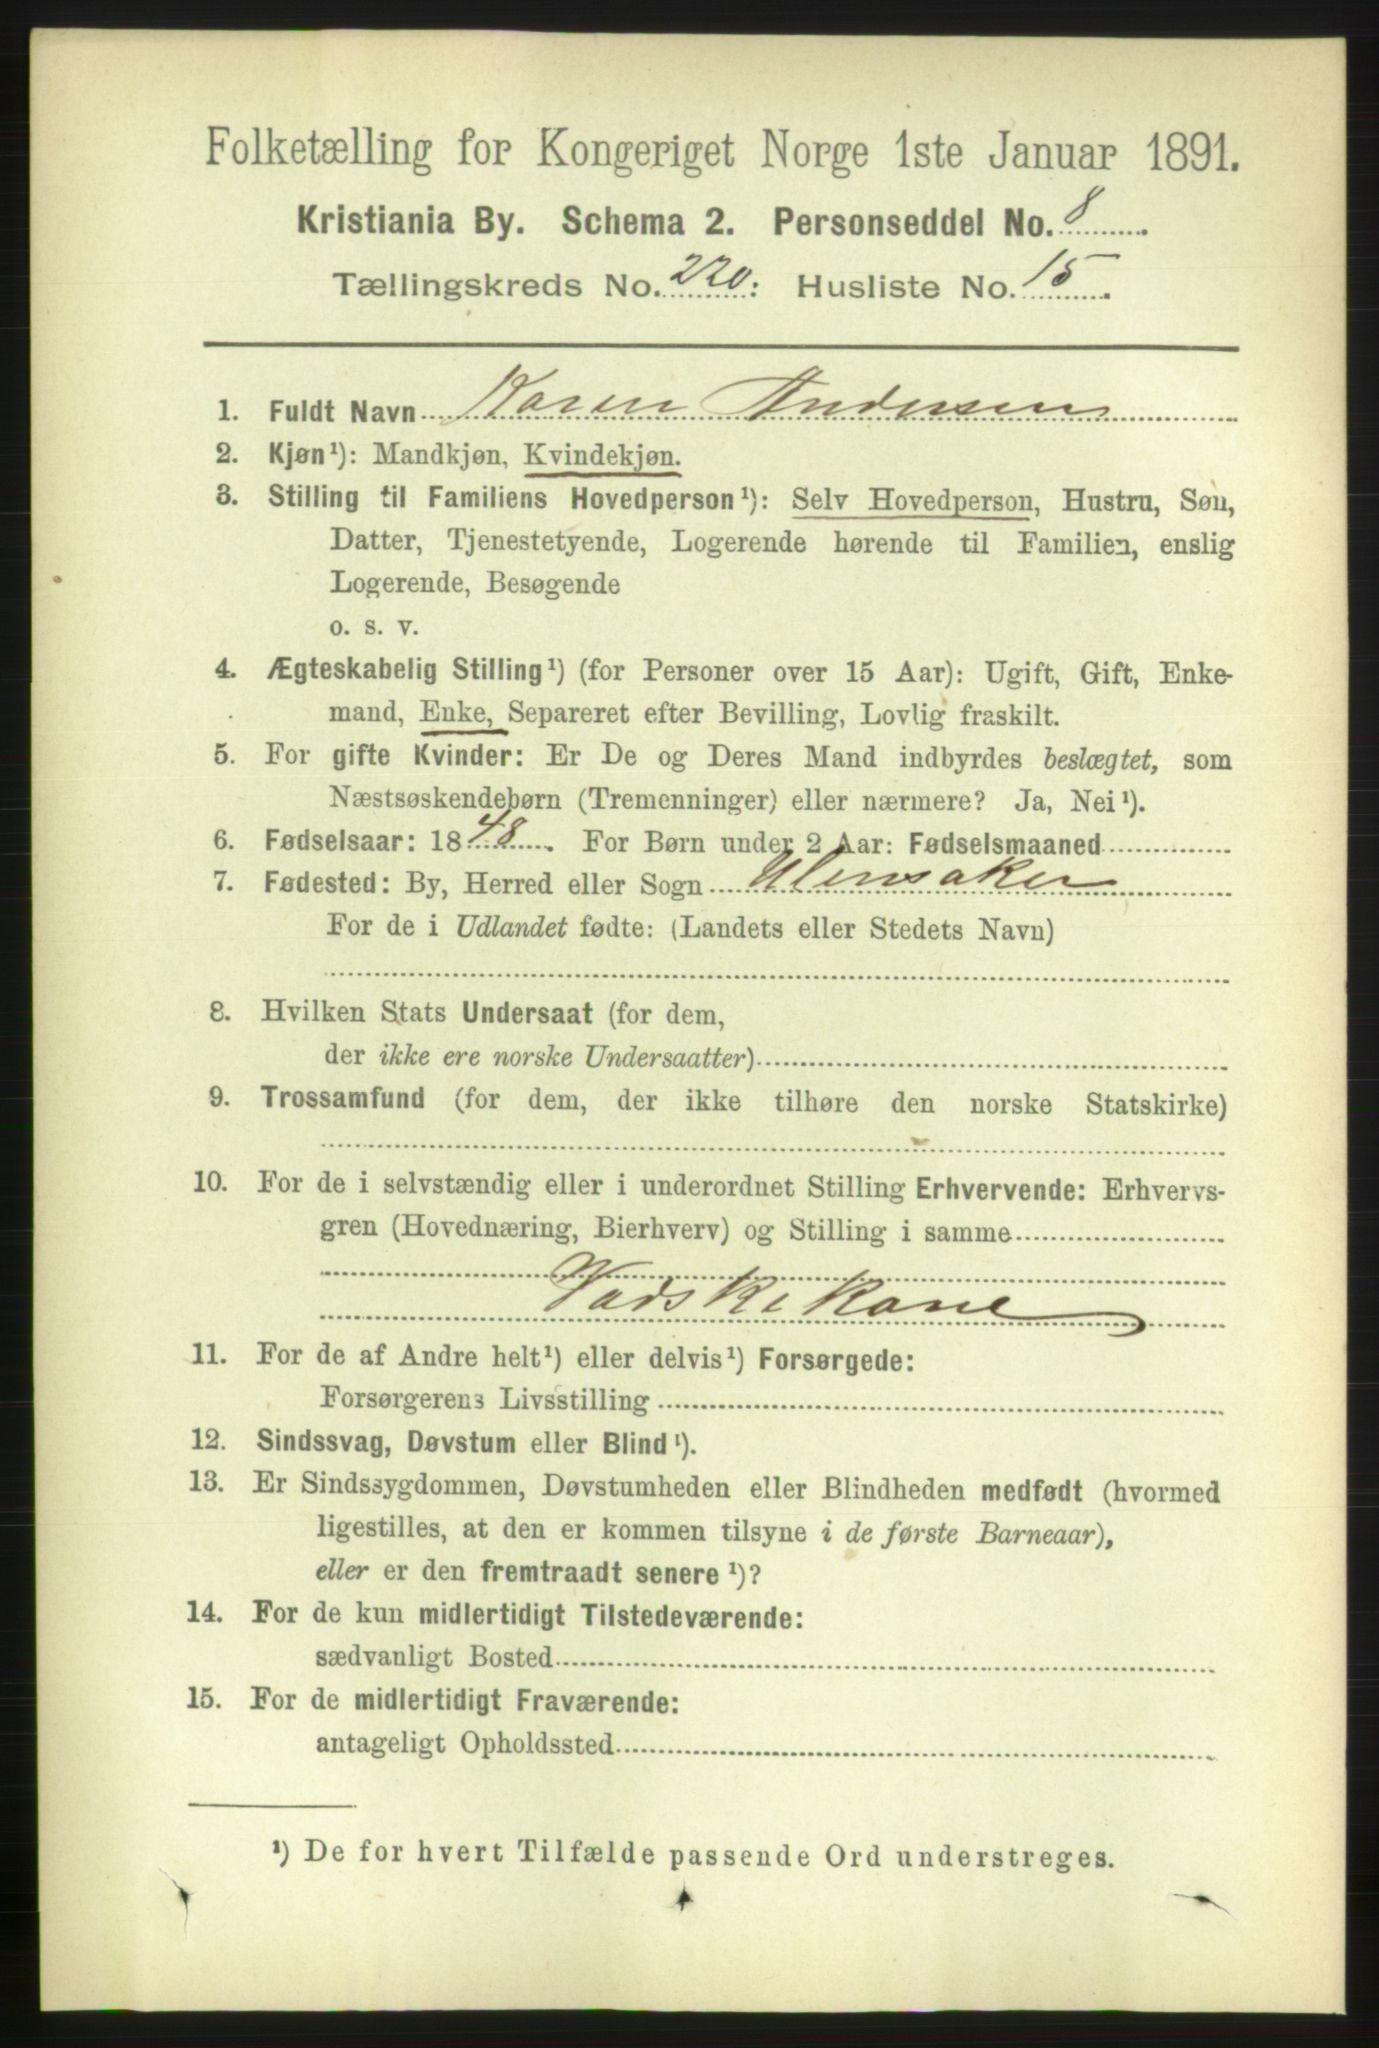 Folketælling for Kongeriget Norge 1ste Januar 1891.
Kristiania By. Schema 2. Personseddel No. 8
Tællingskreds No. 220: Husliste No. 15.
1. Fuldt Navn Karen Andersen
2. Kjøn¹): Mandkjøn, Kvindekjøn.
3. Stilling til Familiens Hovedperson¹): Selv Hovedperson, Hustru, Søn,
Datter, Tjenestetyende, Logerende hørende til Familien, enslig
Logerende, Besøgende
o. s. v.
4. Ægteskabelig Stilling¹) (for Personer over 15 Aar): Ugift, Gift, Enke-
mand, Enke, Separeret efter Bevilling, Lovlig fraskilt.
5. For gifte Kvinder: Er De og Deres Mand indbyrdes beslægtet, som
Næstsøskendebørn (Tremenninger) eller nærmere? Ja, Nei¹).
6. Fødselsaar: 1848. For Børn under 2 Aar: Fødselsmaaned
7. Fødested: By, Herred eller Sogn Ulensaker
For de i Udlandet fødte: (Landets eller Stedets Navn)
8. Hvilken Stats Undersaat (for dem,
der ikke ere norske Undersaatter)
9. Trossamfund (for dem, der ikke tilhøre den norske Statskirke)
10. For de i selvstændig eller i underordnet Stilling Erhvervende: Erhvervs-
gren (Hovednæring, Bierhverv) og Stilling i samme
Vadskekone
11. For de af Andre helt¹) eller delvis¹) Forsørgede:
Forsørgerens Livsstilling
12. Sindssvag, Døvstum eller Blind¹).
13. Er Sindssygdommen, Døvstumheden eller Blindheden medfødt (hvormed
ligestilles, at den er kommen tilsyne i de første Barneaar),
eller er den fremtraadt senere¹)?
14. For de kun midlertidigt Tilstedeværende:
sædvanligt Bosted
15. For de midlertidigt Fraværende:
antageligt Opholdssted
¹) De for hvert Tilfælde passende Ord understreges.